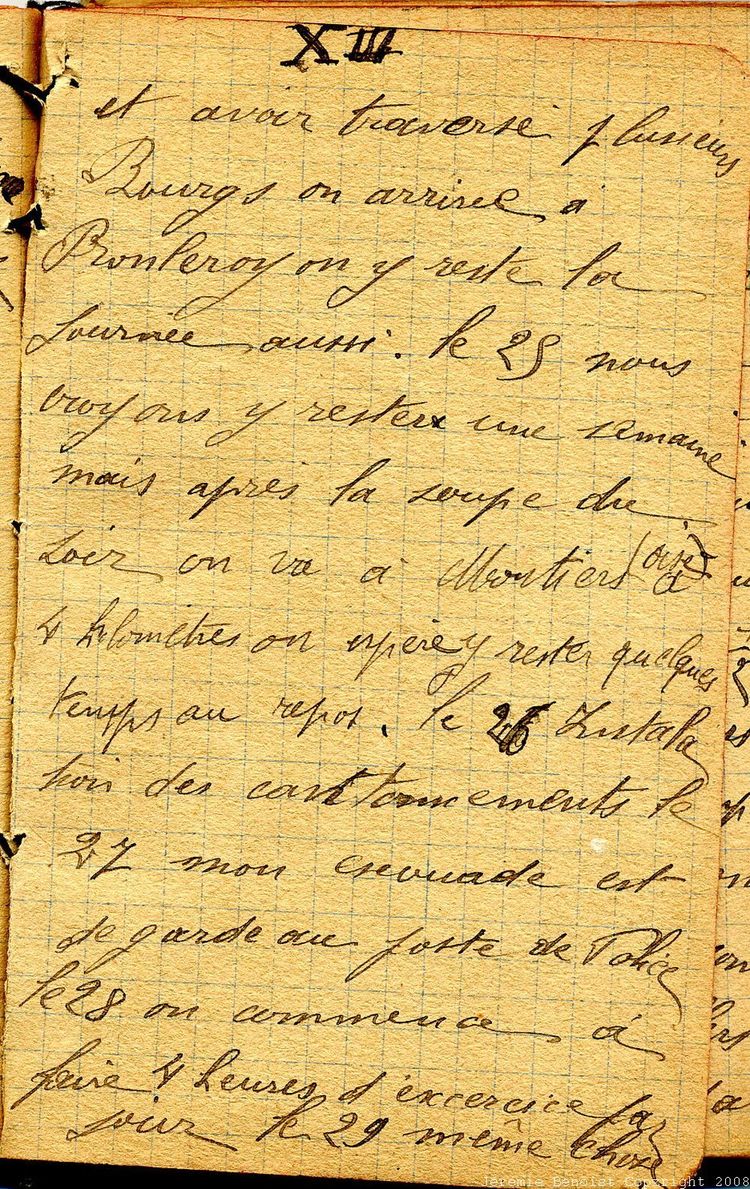 XIII
et avoir traversé plusieurs
Bourgs on arrive à
Pronleroy on y reste la
journée aussi. le 25 nous
croyons y rester une semaine
mais après la soupe du
soir on va à Moutiers (oise) à
4 kilomètres on espère y rester quelques
temps au repos. le 26 Instala
tion des cantonnements le
27 mon escouade est
de garde au poste de Police
le 28 on commence à
faire 4 heures d'excercice par
jour le 29 même chose
Jeremie Benoist Copyright 2008